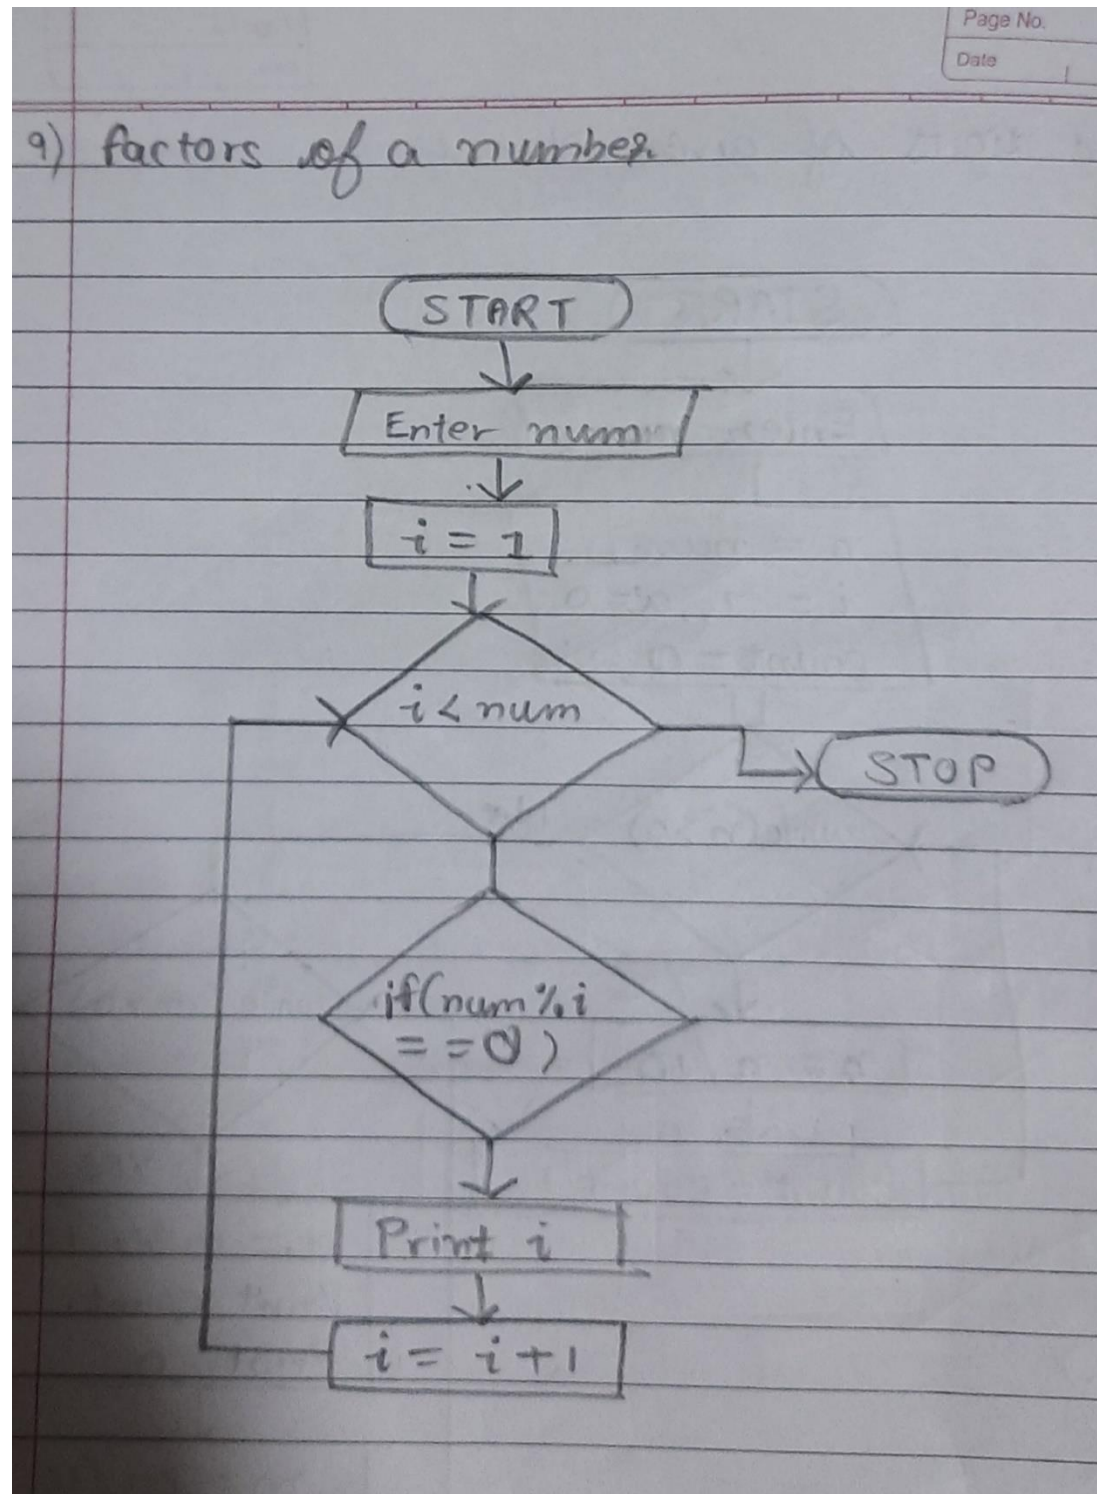 Page No.
Date
9) factors of a number
START
Enter num
i = 1
i < num
STOP
if(num % i
= = 0)
Print i
i = i + 1